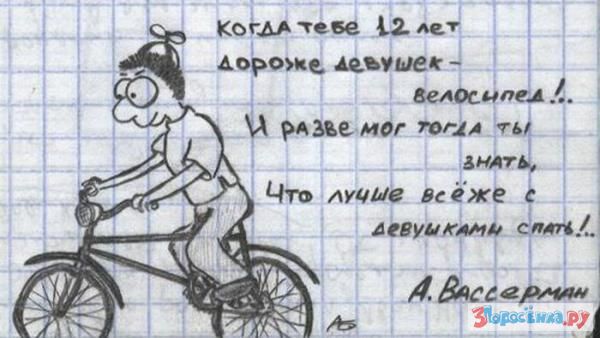 когда тебе 12 лет
дороже девушек –
велосипед!..
И разве мог тогда ты
знать,
Что лучше всёже с
девушками спать!..
А. Вассерман
АБ
3Поросёнка.ру